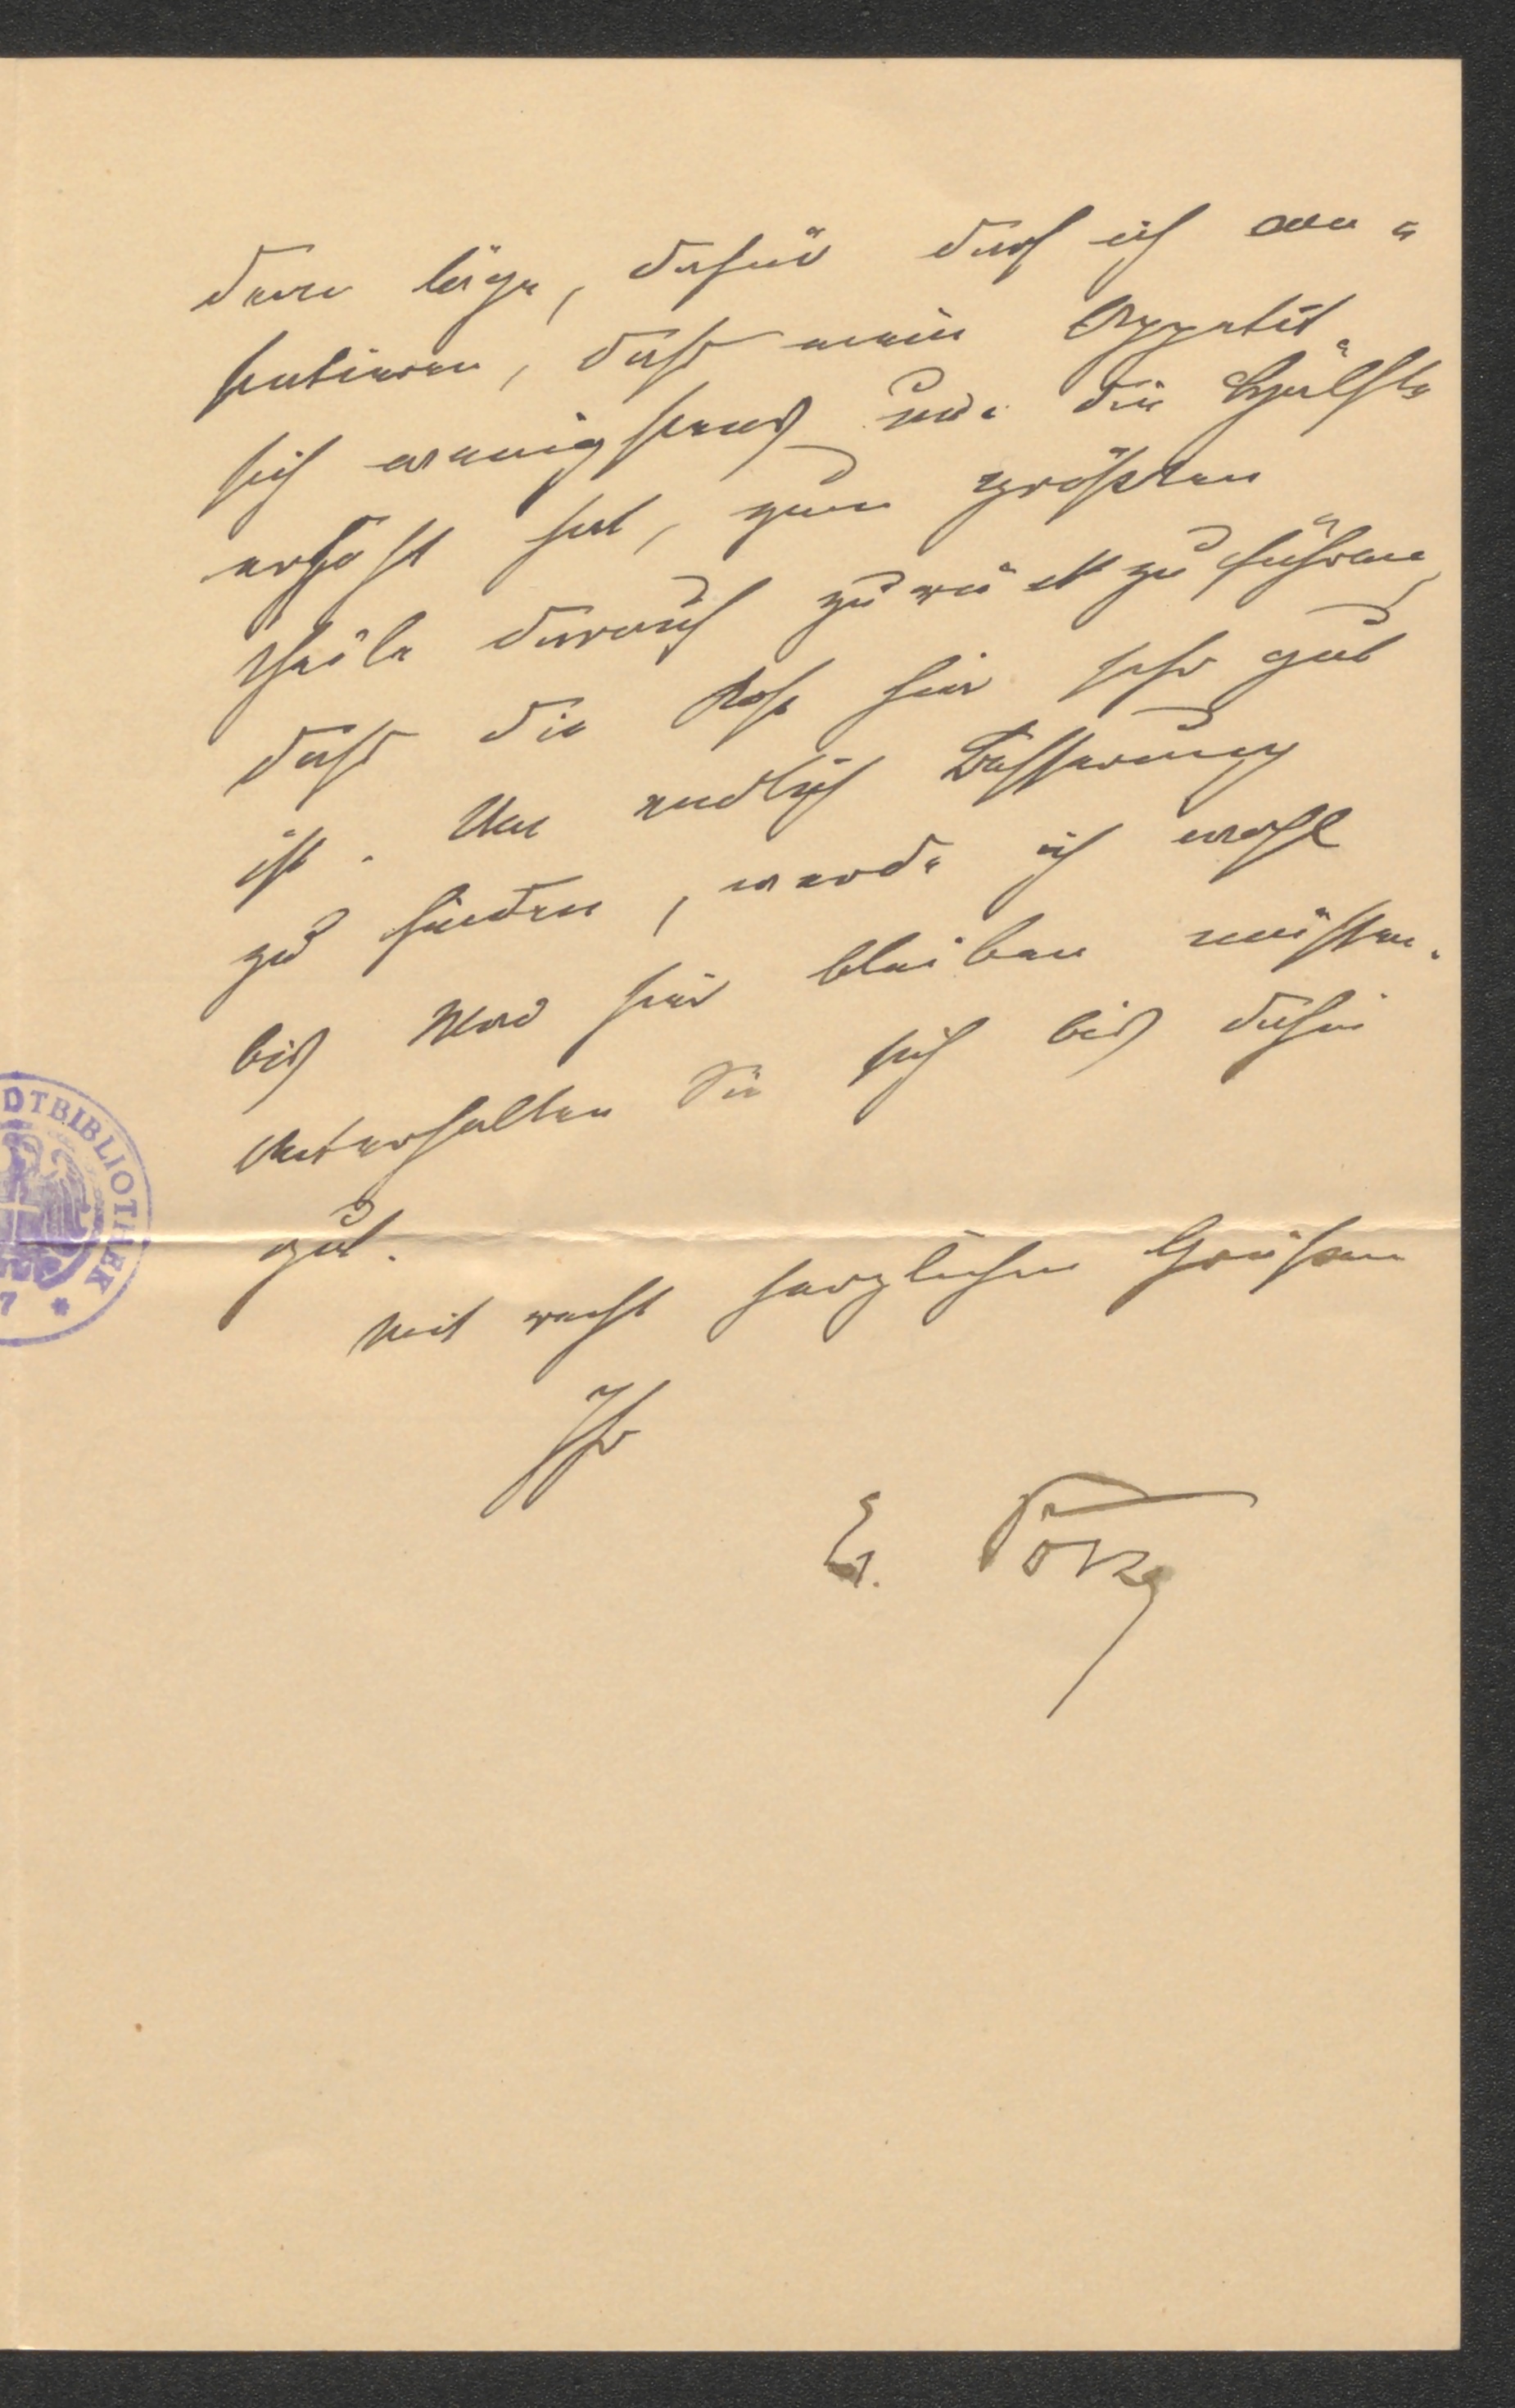 daran läge, dafür darf ich con-
statieren, daß mein Appetit,
sich wenigstens um die Hälfte
erhöht hat, zum größten
Theile darauf zurückzuführen,
daß die Kost hier sehr gut
ist. Um endlich Besserung
zu finden, werde ich wohl
bis hier bleiben müssen.
Unterhalten Sie sich bis dahin
gut.
Mit recht herzlichen Grüßen
Ihr
E.
DTBIBLIOTHEK
7 *